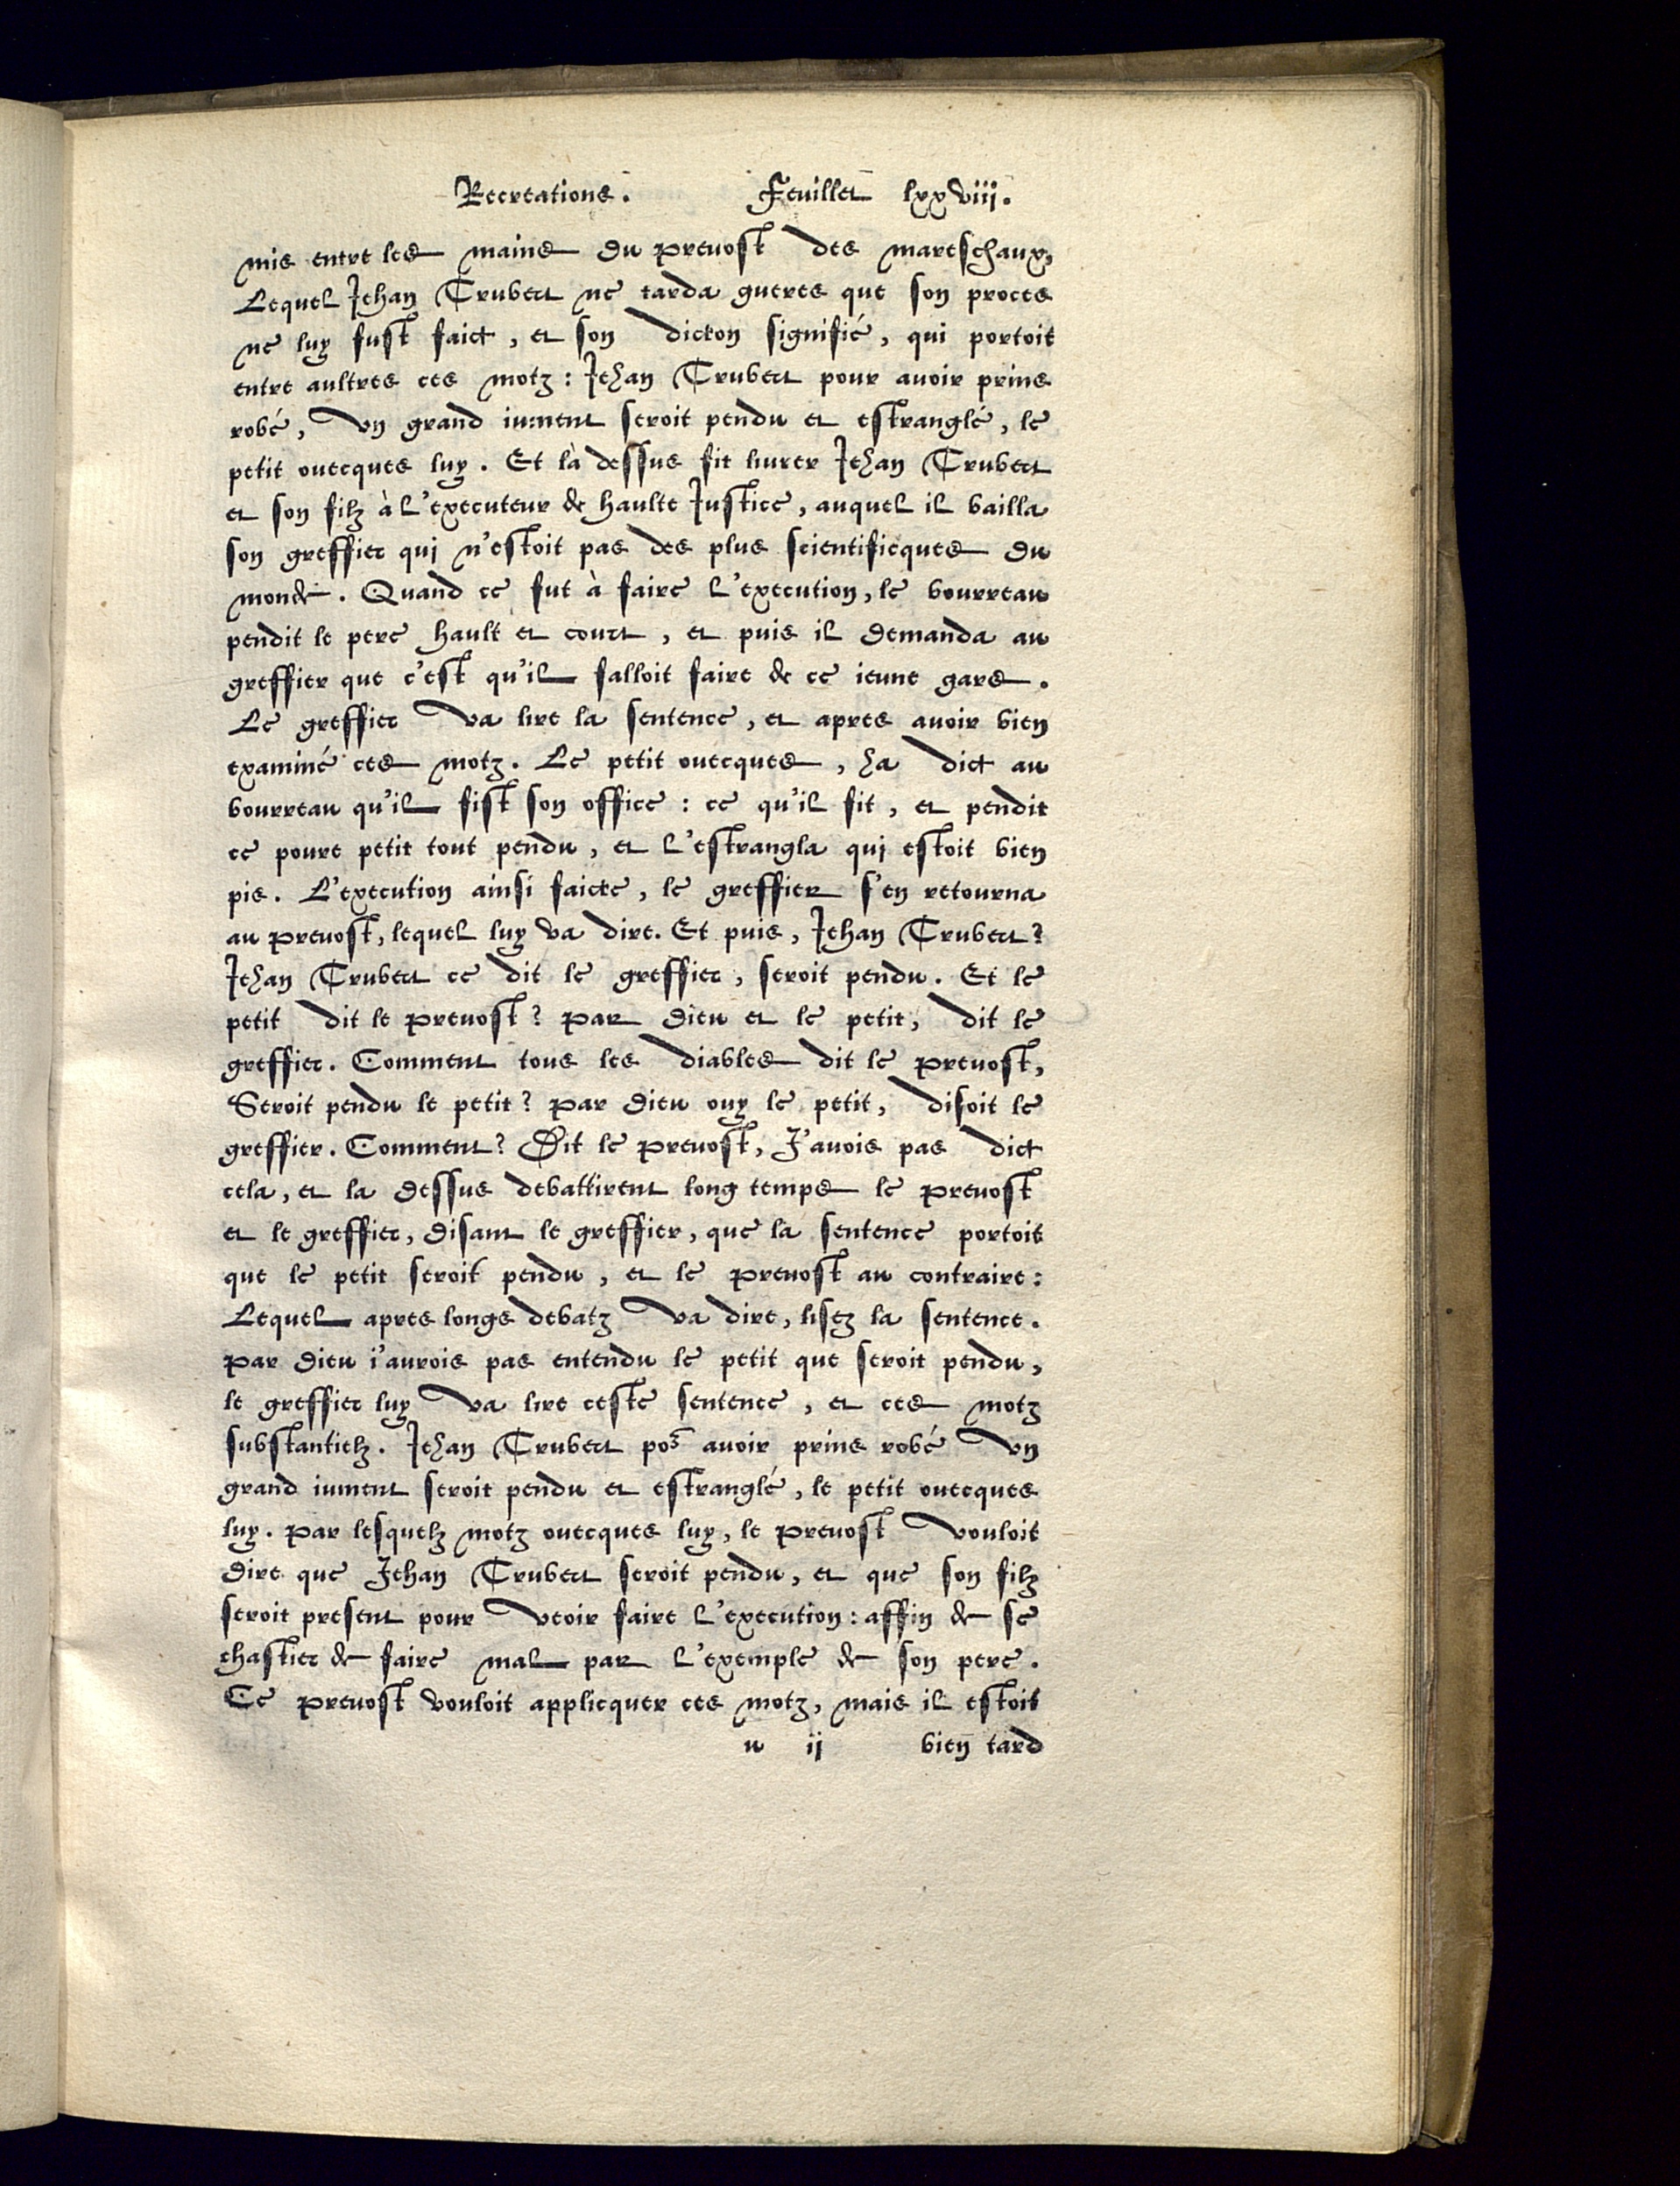 Recreations. Feuillet lxxviij.
mis entre les mains du preuost des mareschaux,
Lequel Jehan Trubert ne tarda gueres que son proces
ne luy fust faict, et son dicton signifié, qui portoit
entre aultres ces motz: Jehan Trubert pour auoir prins
robé, vn grand iument seroit pendu et estranglé, le
petit ouecques luy. Et là dessus fit liurer Jehan Trubert
et son filz à l'executeur de haulte Justice, auquel il bailla
son greffier qui n'estoit pas des plus scientificques du
monde. Quand ce fut à faire l'execution, le bourreau
pendit le pere hault et court, et puis il demanda au
greffier que c'est qu'il falloit faire de ce ieune gars.
Le greffier va lire la sentence, et apres auoir bien
examiné ces motz. Le petit ouecques, ha dict au
bourreau qu'il fist son office: ce qu'il fit, et pendit
ce poure petit tout pendu, et l'estrangla qui estoit bien
pis. L'execution ainsi faicte, le greffier s'en retourna
au preuost, lequel luy va dire. Et puis, Jehan Trubert?
Jehan Trubert ce dit le greffier, seroit pendu. Et le
petit dit le preuost? par dieu et le petit, dit le
greffier. Comment tous les diables dit le preuost,
Seroit pendu le petit? par dieu ouy le petit, disoit le
greffier. Comment? Dit le preuost, J'auois pas dict
cela, et la dessus debattirent long temps le preuost
et le greffier, disant le greffier, que la sentence portoit
que le petit seroit pendu, et le preuost au contraire:
Lequel apres longs debatz va dire, lisez la sentence.
par dieu i'aurois pas entendu le petit que seroit pendu,
le greffier luy va lire ceste sentence, et ces motz
substantielz. Jehan Trubert por auoir prins robé vn
grand iument seroit pendu et estranglé, le petit ouecques
luy. par lesquelz motz ouecques luy, le preuost vouloit
dire que Jehan Trubert seroit pendu, et que son filz
seroit present pour veoir faire l'execution: affin de se
chastier de faire mal par l'exemple de son pere.
Ce preuost vouloit applicquer ces motz, mais il estoit
u ij bien tard